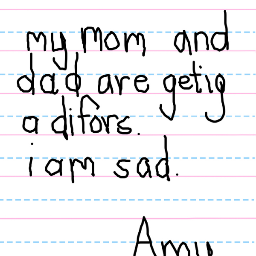 my mom and
dad are getig
a difors.
i am sad.
Amy